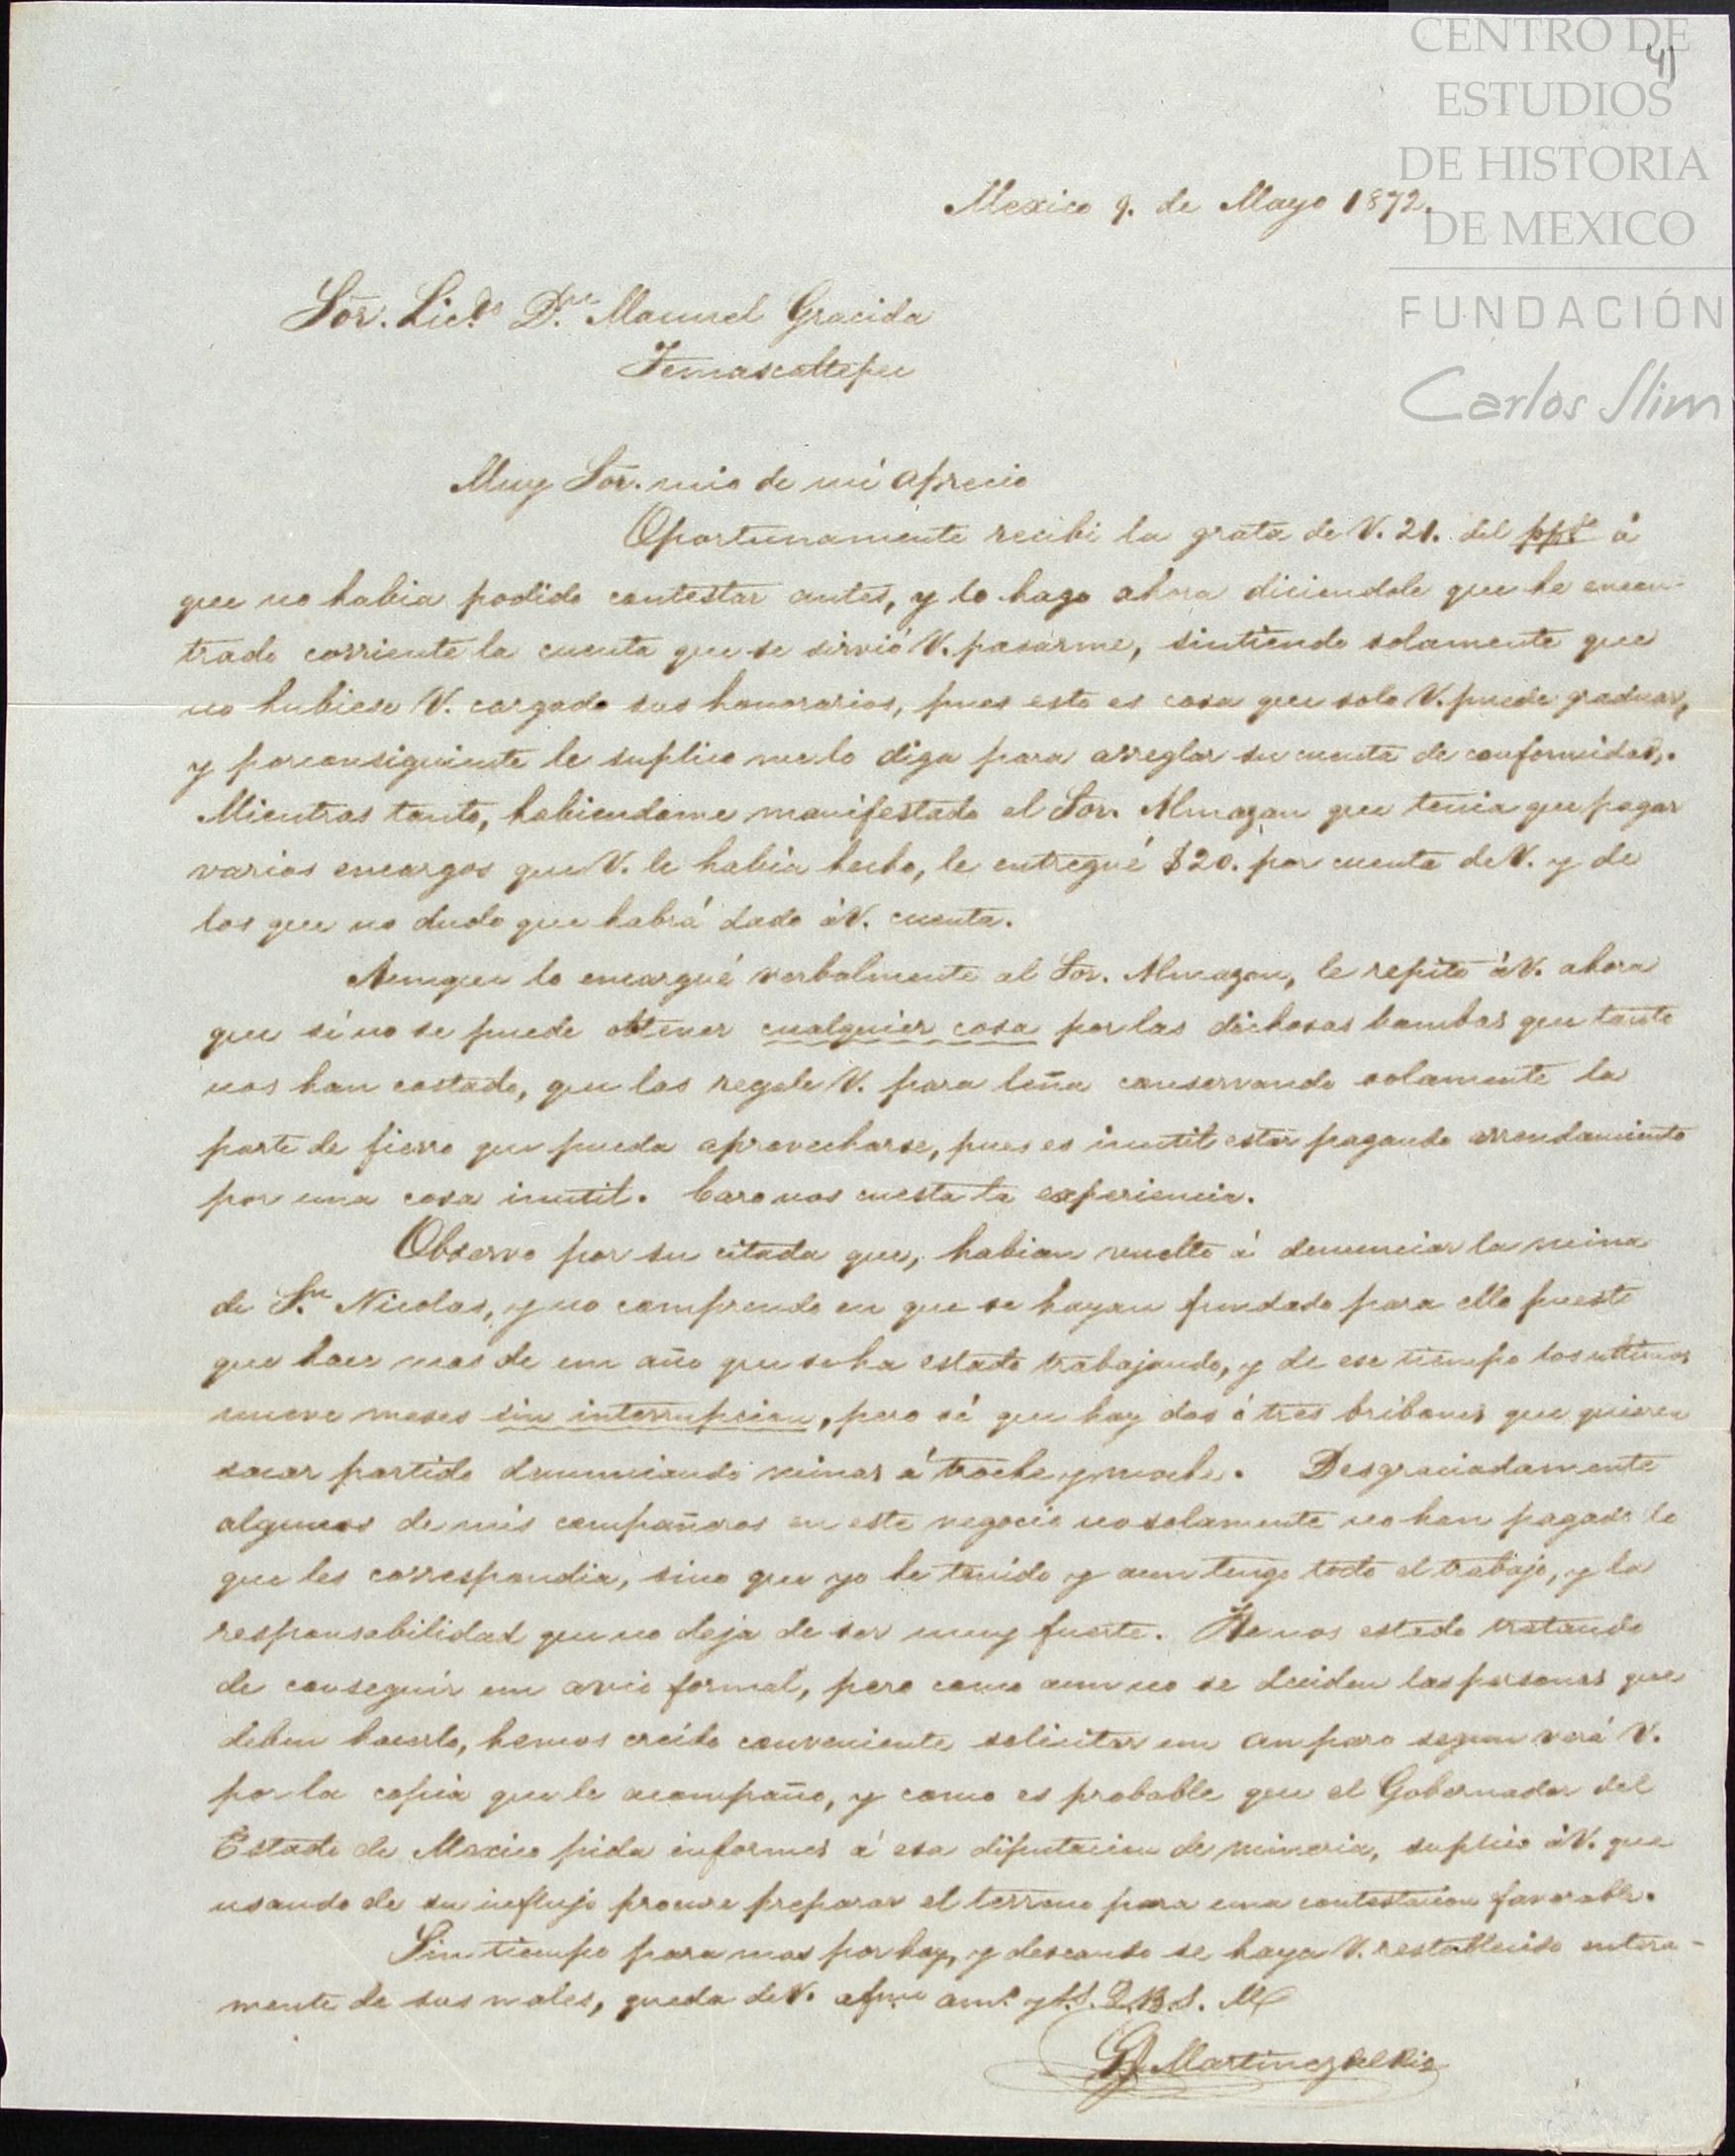 CENTRO DE
ESTUDIOS
DE HISTORIA
DE MEXICO
FUNDACIÓN
Carlos Slim
41
Mexico 9. de Mayo 1872.
Sor. Licdo. Dn. Manuel Gracida
Temascaltepec
Muy Sor. mio de mi aprecio
Oportunamente recibi la grata de V. 21. del ppdo á
que no habia podido contestar antes, y lo hago ahora diciendole que he encon-
trado corriente la cuenta que se sirvió V. pasarme, sintiendo solamente que
no hubiese V. cargado sus honorarios, pues esto es cosa que solo V. puede graduar,
y porconsiguiente le suplico me lo diga para arreglar su cuenta de conformidad.
Mientras tanto, habiendome manifestado el Sor. Almazan que tenia que pagar
varios encargos que V. le habia hecho, le entregué $20. por cuenta de V. y de
los que no dudo que habrá dado á V. cuenta.
Aunque lo encargué verbalmente al Sor. Almazan, le repito á V. ahora
que si no se puede obtener cualquier cosa por las dichosas bombas que tanto
nos han costado, que las regale V. para leña conservando solamente la
parte de fierro que pueda aprovecharse, pues es inutil estar pagando arrendamiento
por una cosa inutil. Caro nos cuesta la experiencia.
Observo por su citada que, habian vuelto á denunciar la mina
de Sn. Nicolas, y no comprendo en que se hayan fundado para ello puesto
que hace mas de un año que se ha estado trabajando, y de ese tiempo los ultimos
nueve meses sin interrupcion, pero sé que hay dos ó tres bribones que quieren
sacar partido denunciando minas á troche y moche. Desgraciadamente
algunos de mis compañeros en este negocio no solamente no han pagado lo
que les correspondia, sino que yo he tenido y aun tengo todo el trabajo, y la
responsabilidad que no deja de ser muy fuerte. Hemos estado tratando
de conseguir un avio formal, pero como aun no se deciden las personas que
deben hacerlo, hemos creido conveniente solicitar un amparo segun verá V.
por la copia que le acompaño, y como es probable que el Gobernador del
Estado de Mexico pida informes á esa diputacion de mineria, suplico á V. que
usando de su influjo procure preparar el terreno para una contestacion favorable.
Sin tiempo para mas por hoy, y deseando se haya V. restablecido entera-
mente de sus males, queda de V. afmo amo. y S.S. Q.B.S. M
Martinez del Rio